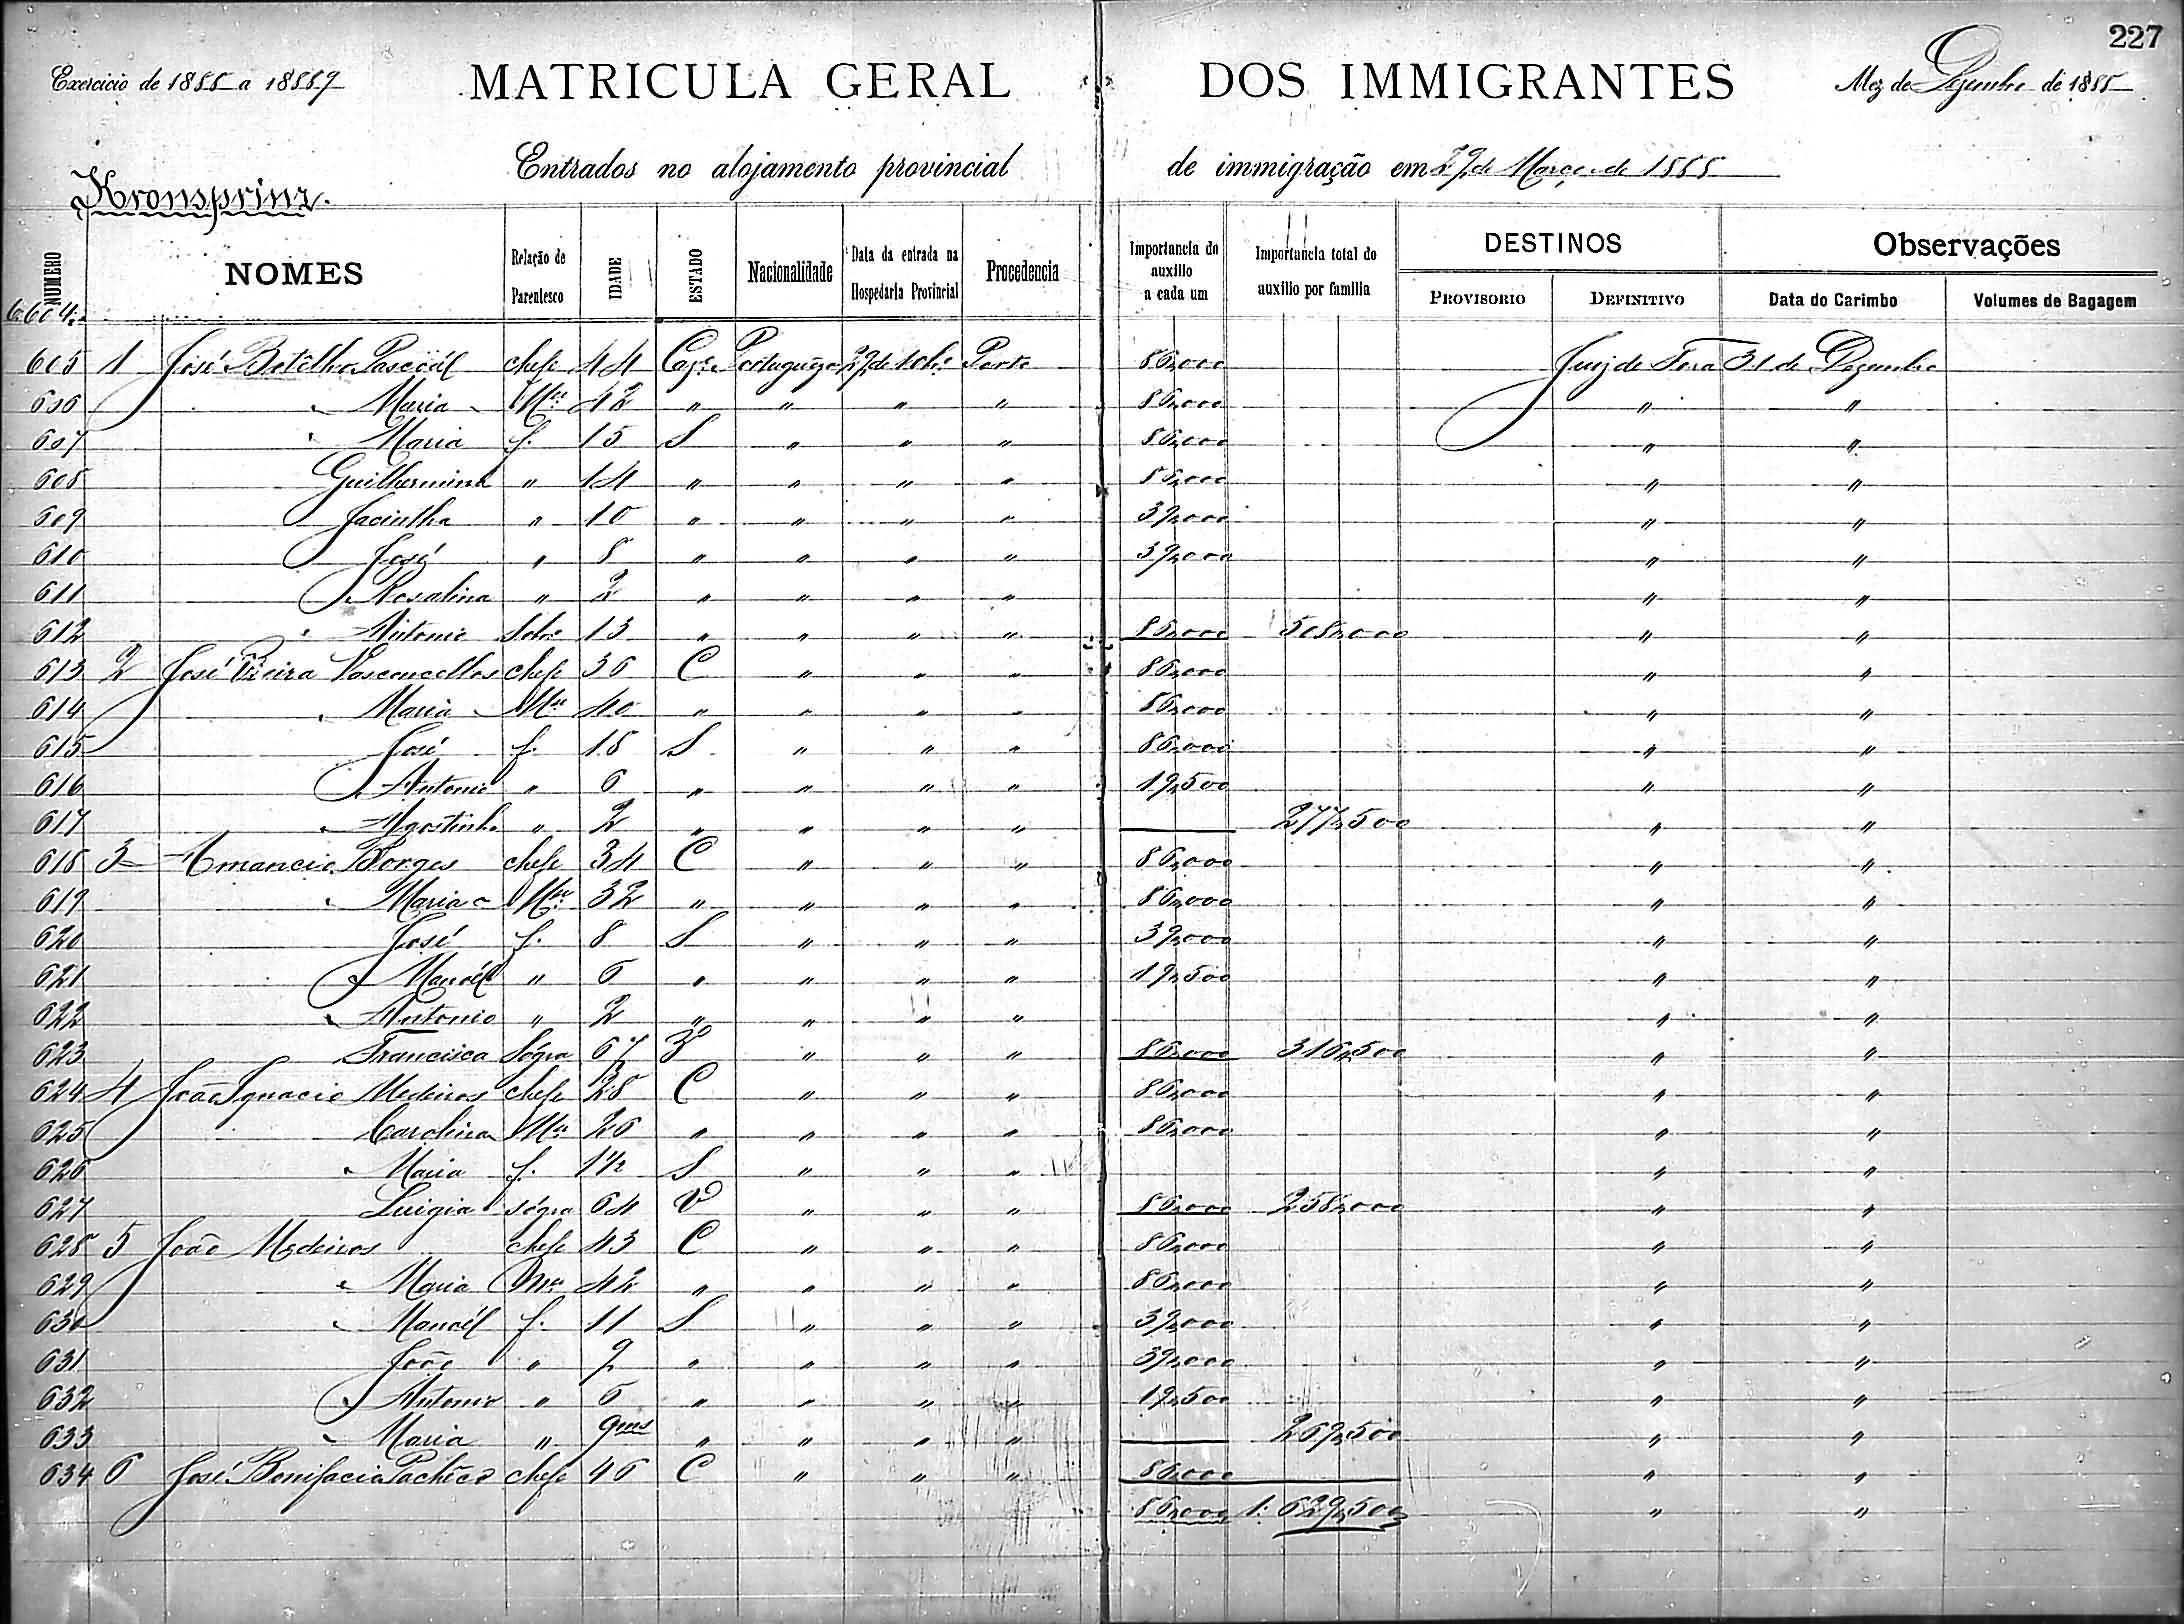 227
Exercicio de 1888 a 1889 MATRICULA GERAL DOS IMMIGRANTES Mez de Dezembro de 1888
Entrados no alojamento provincial de immigração em 29 de Março de 1888
Kronsprinz.
NUMERO NOMES Relação de Parentesco IDADE ESTADO Nacionalidade Data da entrada na Hospedaria Provincial Procedencia Importancia do auxilio a cada um Importancia total do auxilio por familia DESTINOS PROVISORIO DEFINITIVO Observações Data do Carimbo Volumes de Bagagem
6604
605 1 José Botêlho Pascoál chefe 44 Caz.º Portugueza 29 de 10br.º Porto 86,000 Juiz de Fora 31 de Dezembro
606 " Maria Mer 42 " " " " 86,000 " "
607 " Maria f. 15 S " " " 86,000 " "
608 Guilhermina " 14 " " " " 86,000 " "
609 Jacintha " 10 " " " " 39,000 " "
610 José " 8 " " " " 39,000 " "
611 Rosalina " 2 " " " " " "
612 " Antonio Sobr.º 13 " " " " 86,000 508,000 " "
613 2 José Vieira Vasconcellos chefe 36 C " " " 86,000 " "
614 " Maria Mer 40 " " " " 86,000 " "
615 José f. 18 S " " " 86,000 " "
616 Antonio " 6 " " " " 19,500 " "
617 " Agostinho " 2 " " " " 277,500 " "
618 3 Amancio Borges chefe 34 C " " " 86,000 " "
619 " Maria Mer 32 " " " " 86,000 " "
620 José f. 8 S " " " 39,000 " "
621 Manoél " 6 " " " " 19,500 " "
622 " Antonio " 2 " " " " " "
623 Francisca Sógra 67 Vº " " " 86,000 316,500 " "
624 4 João Ignacio Medeiros chefe 28 C " " " 86,000 " "
625 Carolina Mer 26 " " " " 86,000 " "
626 " Maria f. 1 1/2 S " " " " "
627 Luigia sógra 64 Vº " " " 86,000 258,000 " "
628 5 João Medeiros chefe 43 C " " " 86,000 " "
629 " Maria Mer 42 " " " " 86,000 " "
630 " Manoél f. 11 S " " " 39,000 " "
631 João " 9 " " " " 39,000 " "
632 Antonio " 6 " " " " 19,500 " "
633 " Maria " 9ms " " " " 269,500 " "
634 6 José Bonifacio Pachêco chefe 46 C " " " 86,000 " "
86,000 1:629,500 " "